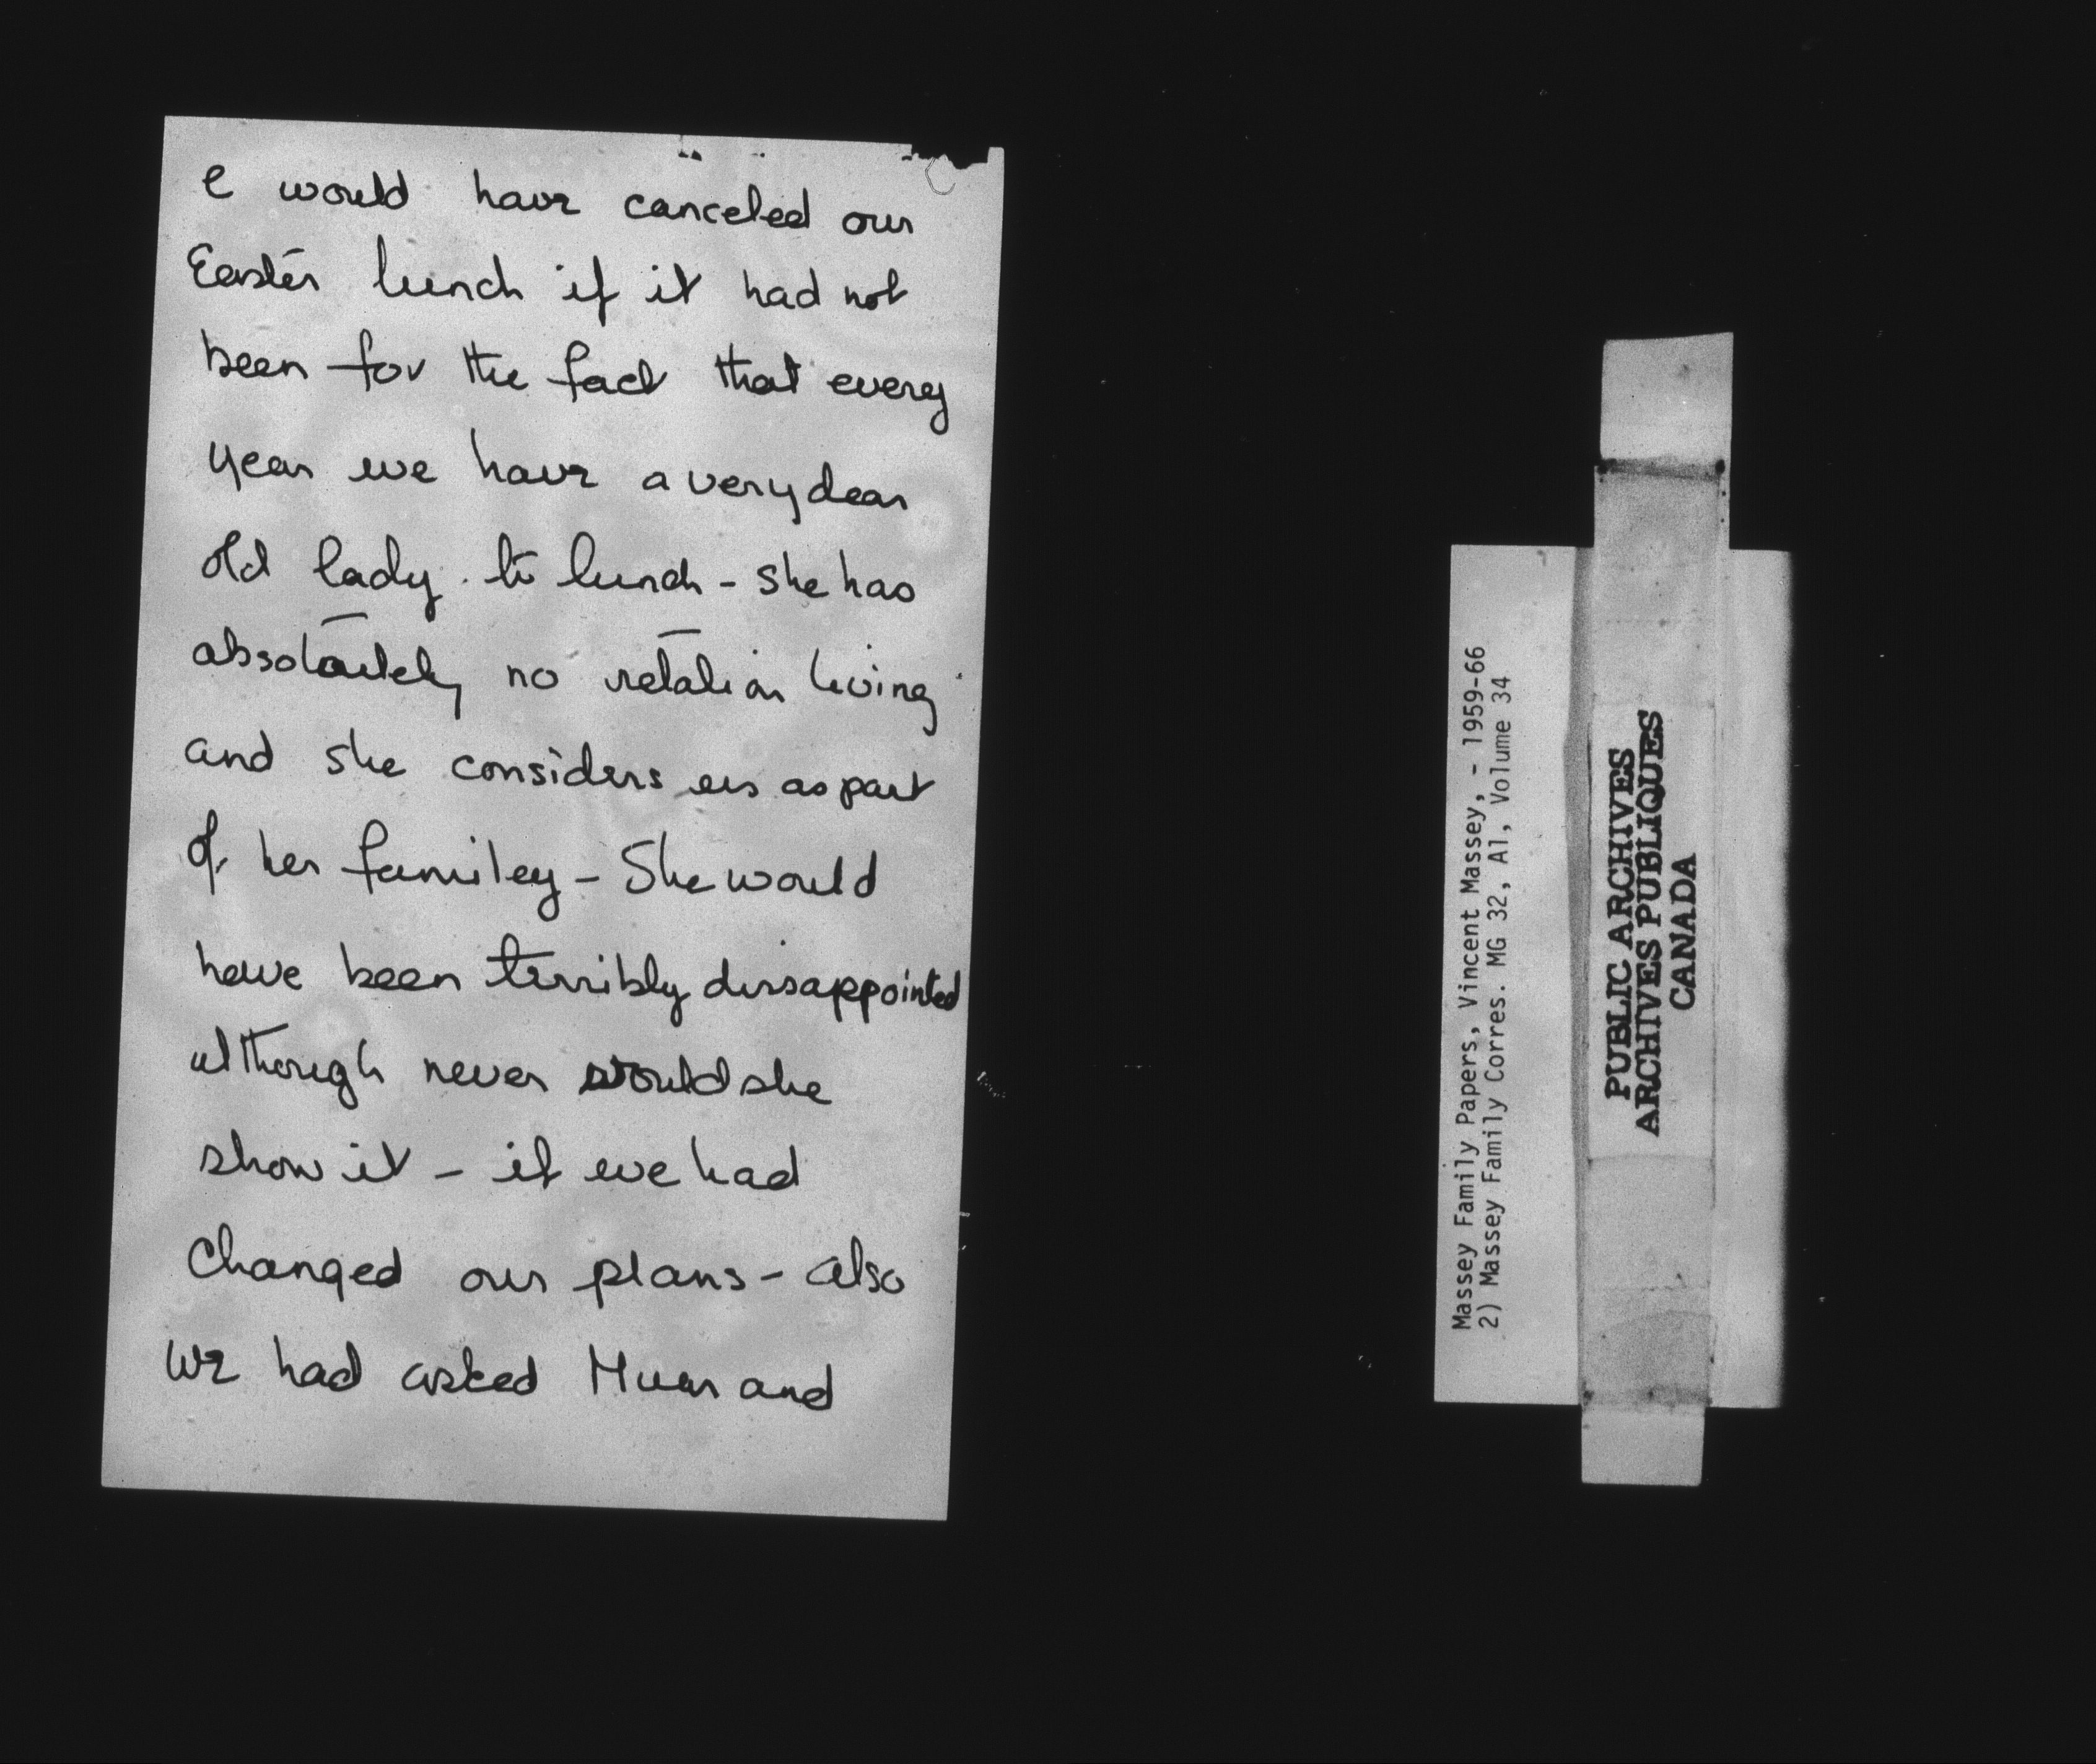 e would have canceled our
Easter lunch if it had not
been for the fact that every
year we have a very dear
old lady to lunch - she has
absolutely no relation living
and she considers us as part
of her familey - She would
have been terribly dissappointed
although never would she
show it - if we had
changed our plans - also
we had asked and
Massey Family Papers, Vincent Massey, - 1959-66
2) Massey Family Corres. MG 32, A1, Volume 34
PUBLIC ARCHIVES
ARCHIVES PUBLIQUES
CANADA